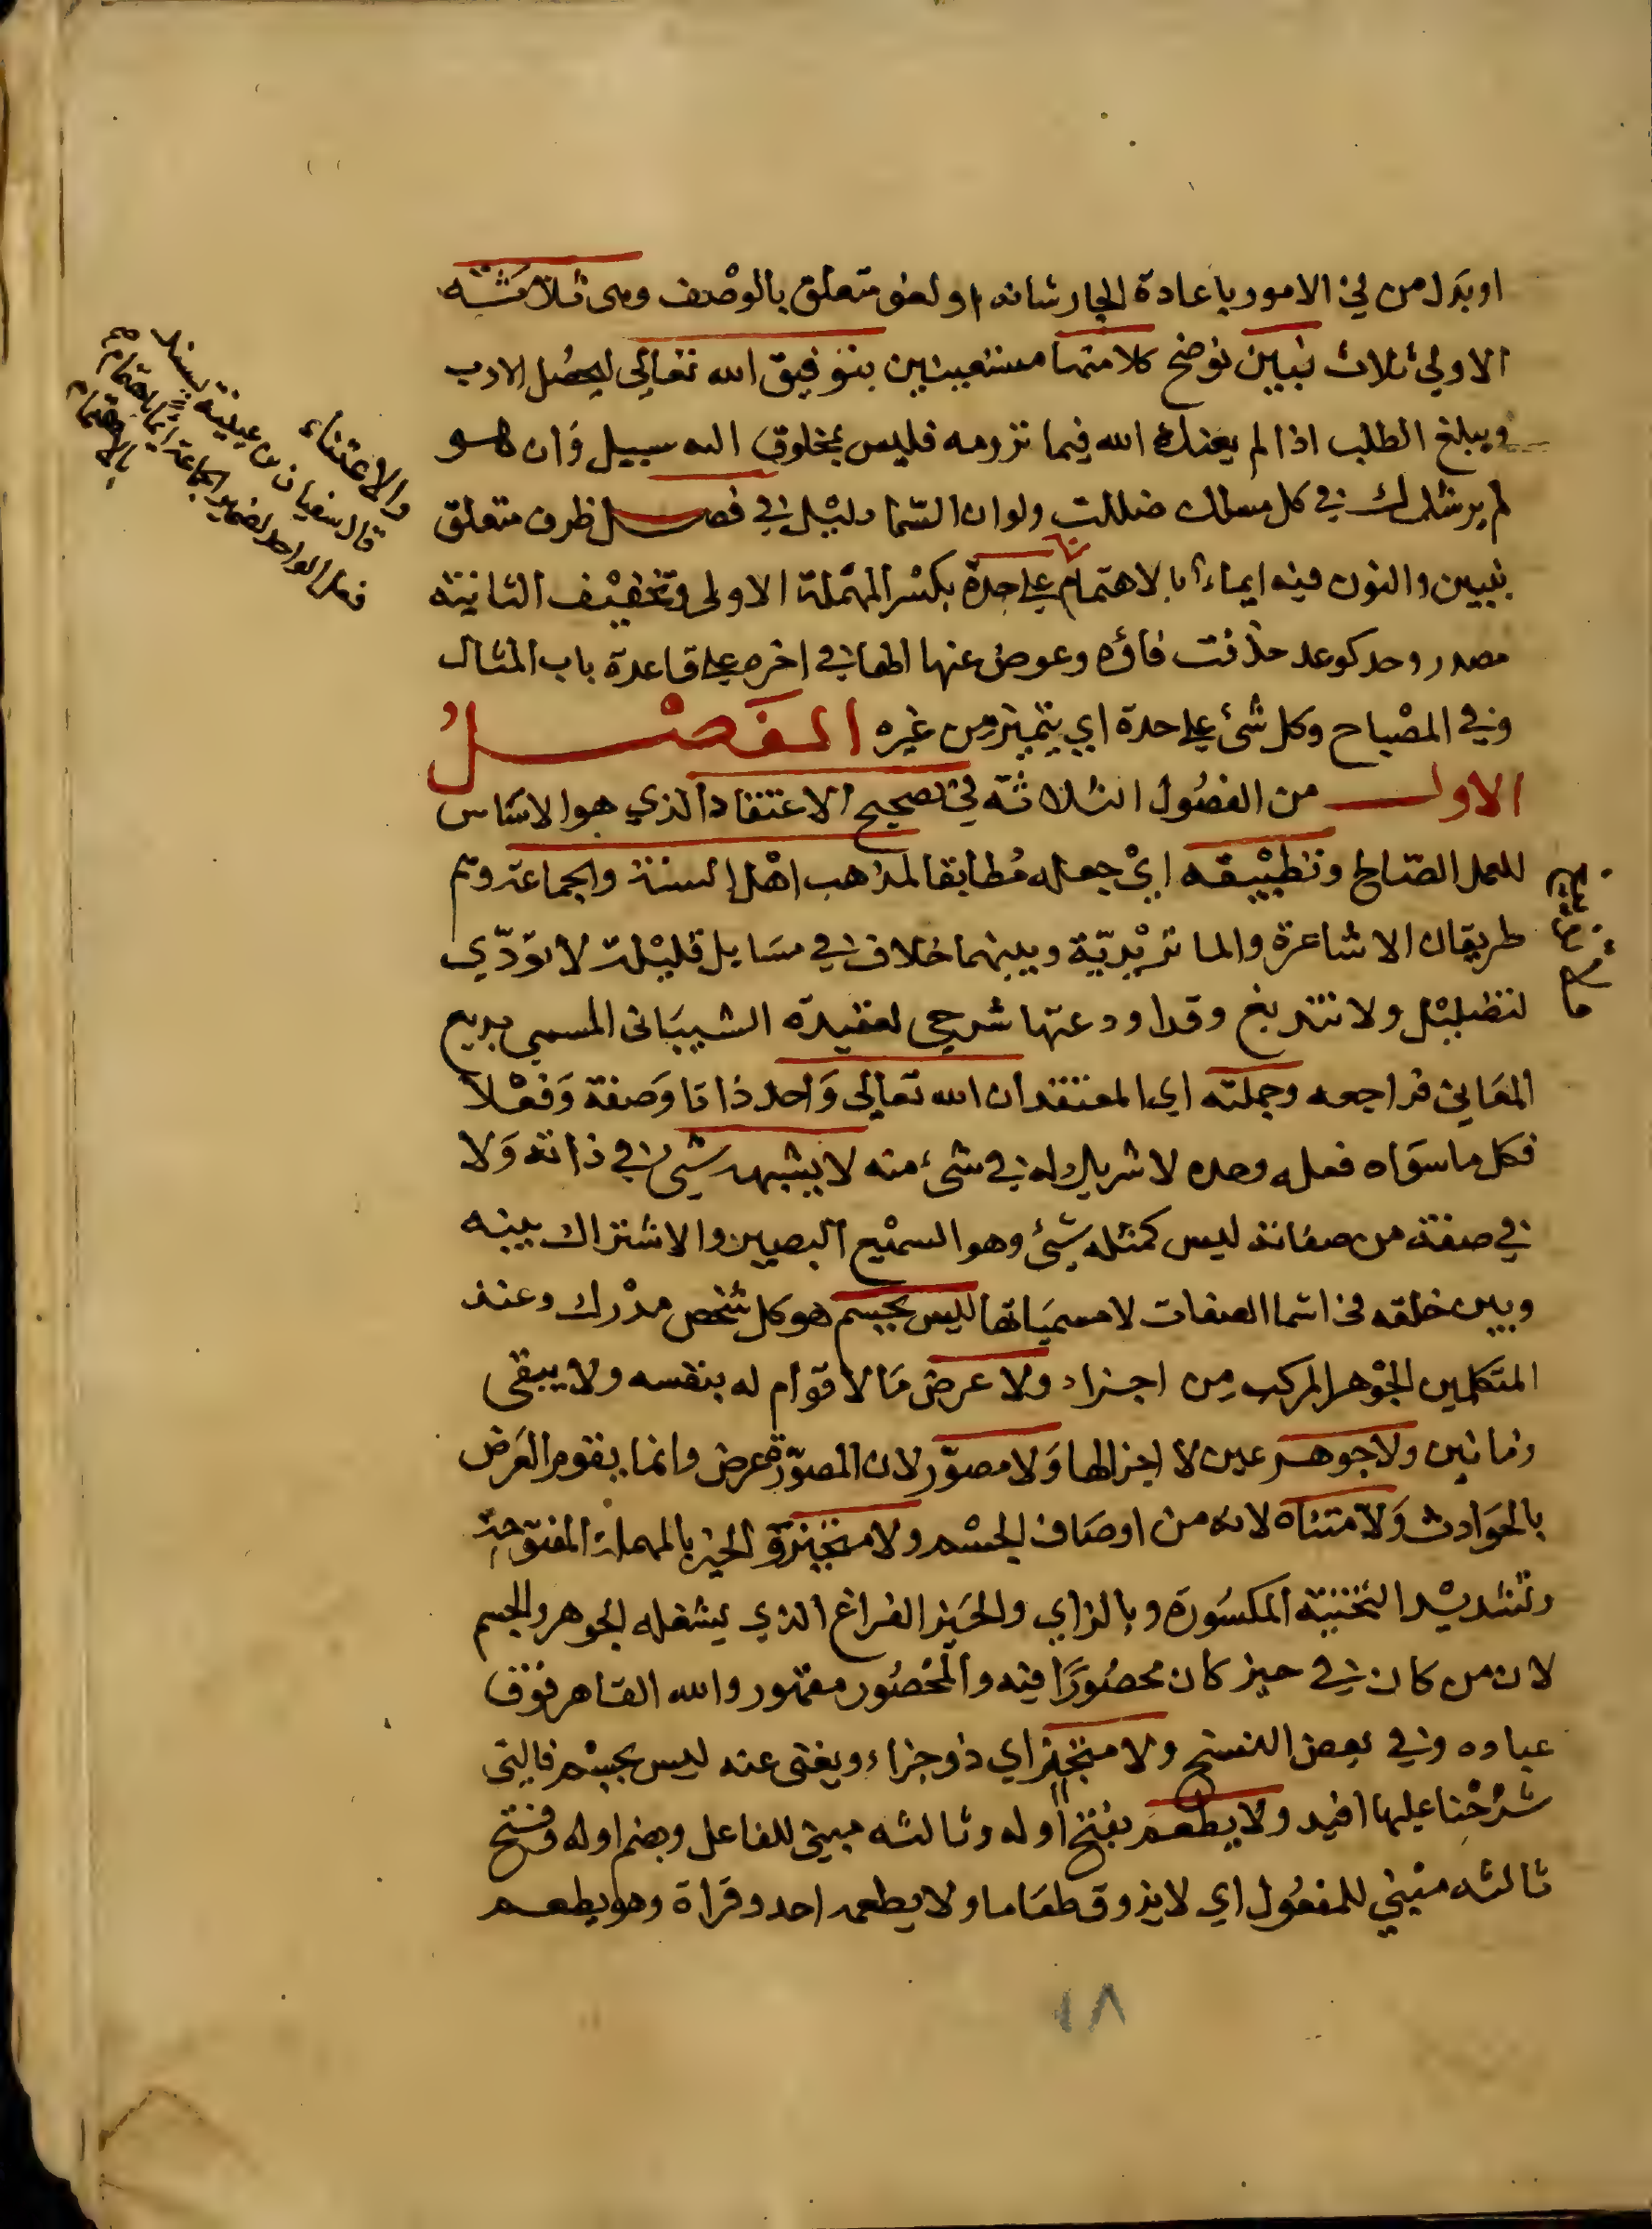 او بدل من في الامور باعادة الجار شانه او لغو متعلق بالوصف وهى ثلاثة
الاولي ثلاث نبين نوضح كلا منها مستعينين بتوفيق الله تعالي ليحصل الادب
ويبلغ الطلب اذا لم يعنك الله فيما ترومه فليس لمخلوق اليه سبيل وان هو
لم يرشدك في كل مسلك ضللت ولوان السما دليل في فصل ظرف متعلق
بنبين والنون فيه ايماء بالاهتمام على حدة بكسر المهملة الاولى وتخفيف الثانية
مصدر وحد كوعد حذفت فاؤه وعوض عنها الها في اخره على قاعدة باب المثال
وفي المصباح وكل شئ على حدة اي يتميز من غيره الفصل
الاول من الفصول الثلاثة في تصحيح الاعتقاد الذي هو الاساس
للعمل الصالح وتطبيقه اي جعله مطابقا لمذهب اهل السنة والجماعة وهم
طريقان الاشاعرة والماتريدية وبينهما خلاف في مسايل قليلة لا تودي
لتضليل ولا تبديع وقد اودعتها شرحي لعقيدة الشيباني المسمي بديع
المعاني فراجعه وجملته اي المعتقد ان الله تعالي واحد ذاتا وصفة وفعلا
فكل ما سواه فعله وحده لا شريك له في شئ منه لا يشبهه شئ في ذاته ولا
في صفة من صفاته ليس كمثله شئ وهو السميع البصير والاشتراك بينه
وبين خلقه في اسما الصفات لا مسمياتها ليس بجسم هو كل شخص مدرك وعند
المتكلمين الجوهر المركب من اجزاء ولا عرض ما لا قوام له بنفسه ولا يبقى
زمانين ولا جوهر عين لا اجزالها ولا مصور لان المصورة عرض وانما يقوم العرض
بالحوادث ولا متناه لانه من اوصاف الجسم ولا متحيز الحيز بالمهملة المفتوحة
وتشديد التحتية المكسورة وبالزاي والحيز الفراغ الذي يشغله الجوهر والجسم
لان من كان في حيز كان محصورا فيه والمحصور مقهور والله القاهر فوق
عباده وفي بعض النسخ ولا متجز اي ذو جزاء ويغنى عنه ليس بجسم فالتي
شرحنا عليها افيد ولا يطعم بفتح اوله وثالثه مبني للفاعل وبضم اوله وفتح
ثالثه مبني للمفعول اي لا يذوق طعاما ولا يطعمه احد وقراة وهو يطعم
والاعتناء
قال سفيان بن عيينة
بالاهتمام
١٨